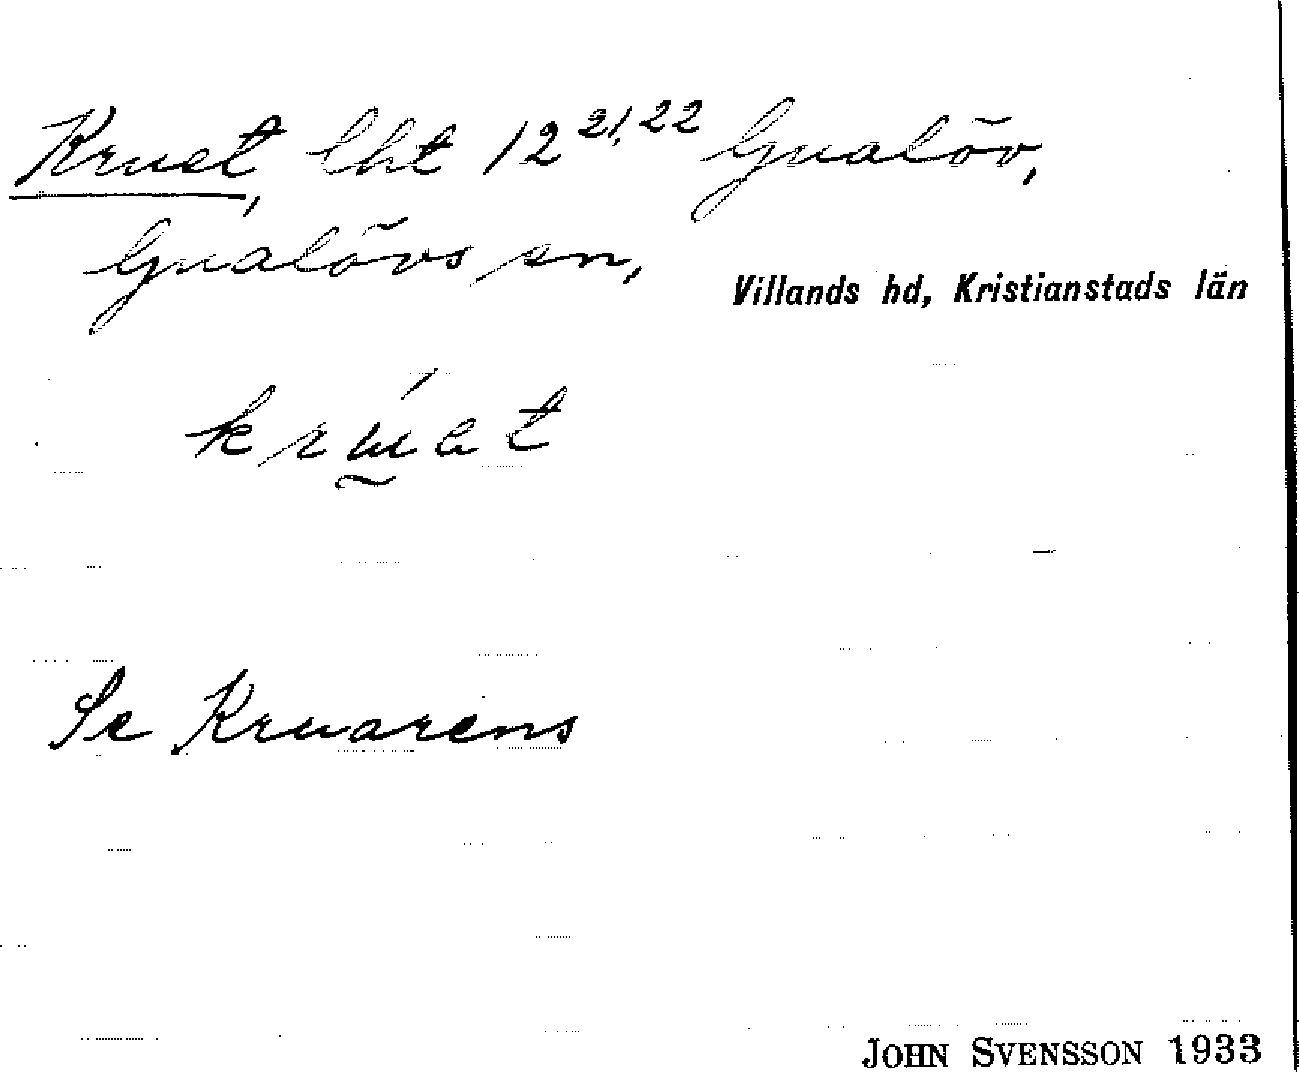 Kruet, lht 12 21, 22 Gualöv,
Gualövs sn,
Villands hd, Kristianstads län
krúət
Se Kruarens
JOHN SVENSSON 1933